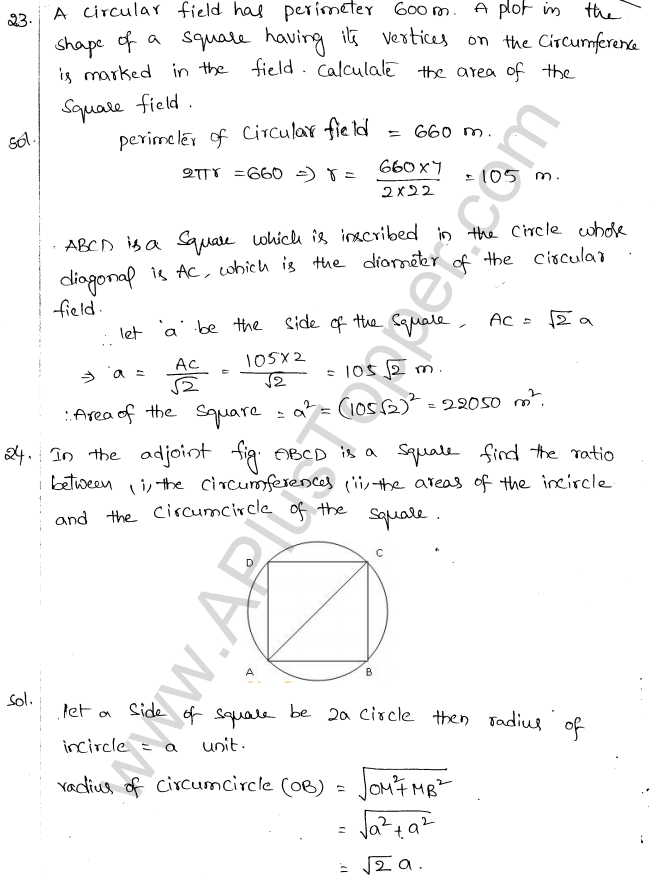 23. A circular field has perimeter 600 m. A plot in the
shape of a square having its vertices on the circumference
is marked in the field. Calculate the area of the
square field.
sol. perimeter of circular field = 660 m.
2πr = 660 => r = (660×7)/(2×22) = 105 m.
ABCD is a square which is inscribed in the circle whose
diagonal is AC, which is the diameter of the circular
field.
∴ let 'a' be the side of the square, AC = √2 a
⇒ a = AC/√2 = (105×2)/√2 = 105√2 m.
∴ Area of the square = a² = (105√2)² = 22050 m².
24. In the adjoint fig. ABCD is a square find the ratio
between (i) the circumferences (ii) the areas of the incircle
and the circumcircle of the square.
D C
A B
sol. let a side of square be 2a circle then radius of
incircle = a unit.
radius of circumcircle (OB) = √(OM²+MB²)
= √(a²+a²)
= √2 a.
www.APlusTopper.com